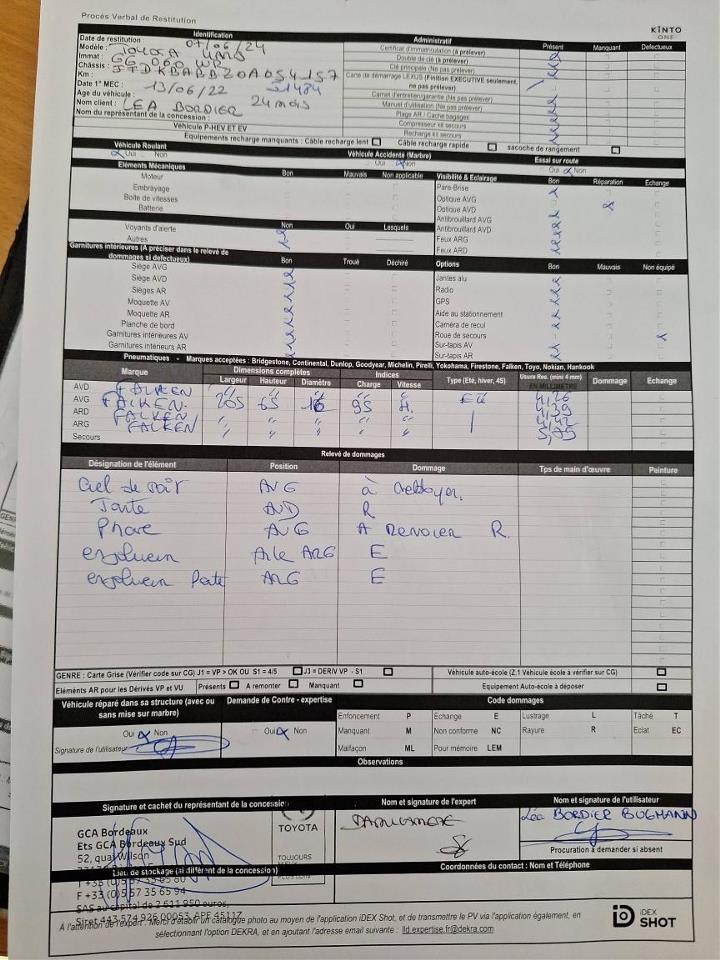 Procès Verbal de Restitution
KINTO
ONE
Identification
Administratif
Présent Manquant Défectueux
Date de restitution : 07/06/24
Modèle : TOYOTA
Immat :
Châssis :
Km : 21484
Date 1° MEC : 13/06/22
Age du véhicule : 24 mois
Nom client : LEA BORDIER
Nom du représentant de la concession :
Certificat d'immatriculation (à prélever)
Double de clé (à prélever)
Clé principale (Ne pas prélever)
Carte de démarrage LEXUS (Finition EXECUTIVE seulement,
ne pas prélever)
Carnet d'entretien/garantie (Ne pas prélever)
Manuel d'utilisation (Ne pas prélever)
Plage AR / Cache bagages
Compresseur et secours
Recharge et secours
Véhicule P-HEV ET EV
Equipements recharge manquants : Câble recharge lent Câble recharge rapide sacoche de rangement
Véhicule Roulant
Oui Non
Véhicule Accidenté (Marbre)
Oui Non
Essai sur route
Oui Non
Eléments Mécaniques Bon Mauvais Non applicable
Moteur
Embrayage
Boîte de vitesses
Batterie
Non Oui Lesquels
Voyants d'alerte
Autres
Visibilité & Eclairage Bon Réparation Echange
Pare-Brise
Optique AVG
Optique AVD
Antibrouillard AVG
Antibrouillard AVD
Feux ARG
Feux ARD
Garnitures intérieures (A préciser dans le relevé de
dommages si défectueux) Bon Troué Déchiré
Siège AVG
Siège AVD
Sièges AR
Moquette AV
Moquette AR
Planche de bord
Garnitures intérieures AV
Garnitures intérieures AR
Options Bon Mauvais Non équipé
Jantes alu
Radio
GPS
Aide au stationnement
Caméra de recul
Roue de secours
Sur-tapis AV
Sur-tapis AR
Pneumatiques - Marques acceptées : Bridgestone, Continental, Dunlop, Goodyear, Michelin, Pirelli, Yokohama, Firestone, Falken, Toyo, Nokian, Hankook
Marque Dimensions complètes Indices Type (Eté, hiver, 4S) Dommage Echange
Largeur Hauteur Diamètre Charge Vitesse
AVD FALKEN " " " " " 4,26
AVG FALKEN 205 65 16 95 H Eté 4,39
ARD FALKEN " " " " " 4,42
ARG FALKEN " " " " "
Secours
Relevé de dommages
Désignation de l'élément Position Dommage Tps de main d'œuvre Peinture
Ciel de AVG à nettoyer.
Jante AVD R
Phare AVG A Renover R.
Aile ARG E
ARG E
GENRE : Carte Grise (Vérifier code sur CG) J1 = VP > OK OU S1 = 4/5 J3 = DERIV VP - S1 Véhicule auto-école (Z.1 Véhicule école à vérifier sur CG)
Eléments AR pour les Dérivés VP et VU Présents A remonter Manquant Equipement Auto-école à déposer
Véhicule réparé dans sa structure (avec ou
sans mise sur marbre)
Oui Non
Signature de l'utilisateur
Demande de Contre - expertise
Oui Non
Code dommages
Enfoncement P Echange E Lustrage L Tâché T
Manquant M Non conforme NC Rayure R Eclat EC
Malfaçon ML Pour mémoire LEM
Observations
Signature et cachet du représentant de la concession
Nom et signature de l'expert
Nom et signature de l'utilisateur
GCA Bordeaux
Ets GCA Bordeaux Sud
52, quai Wilson
TOYOTA
TOUJOURS
Léa BORDIER BUGMANN
Procuration à demander si absent
Lieu de stockage (si différent de la concession)
Coordonnées du contact : Nom et Téléphone
F +33 (0)5 57 35 65 94
SAS au capital de 2 611 950 euros,
Siret 443 574 926 00053 APE 4511Z
A l'attention de l'expert : Merci d'établir un catalogue photo au moyen de l'application iDEX Shot, et de transmettre le PV via l'application également, en
sélectionnant l'option DEKRA, et en ajoutant l'adresse email suivante : lld.expertise.fr@dekra.com
iDEX
SHOT